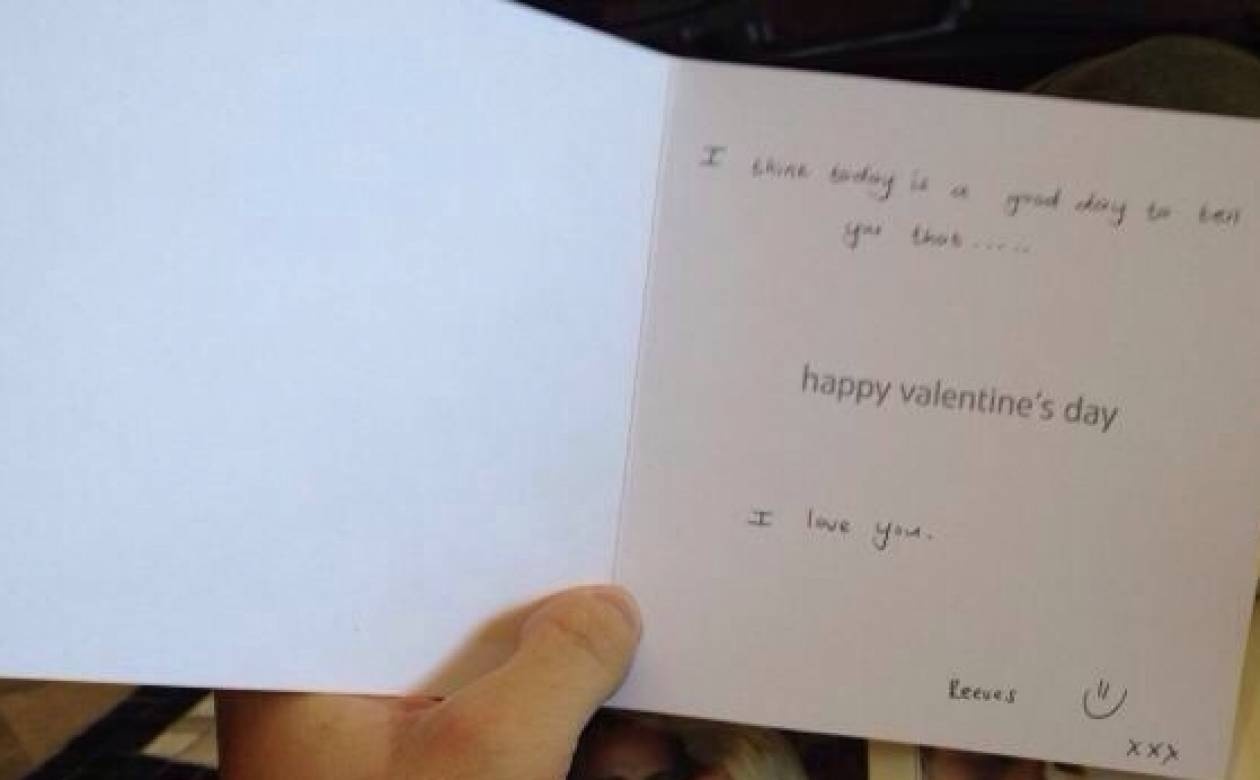 I think today is a good day to tell
you that.....
happy valentine's day
I love you.
Reeves
xxx